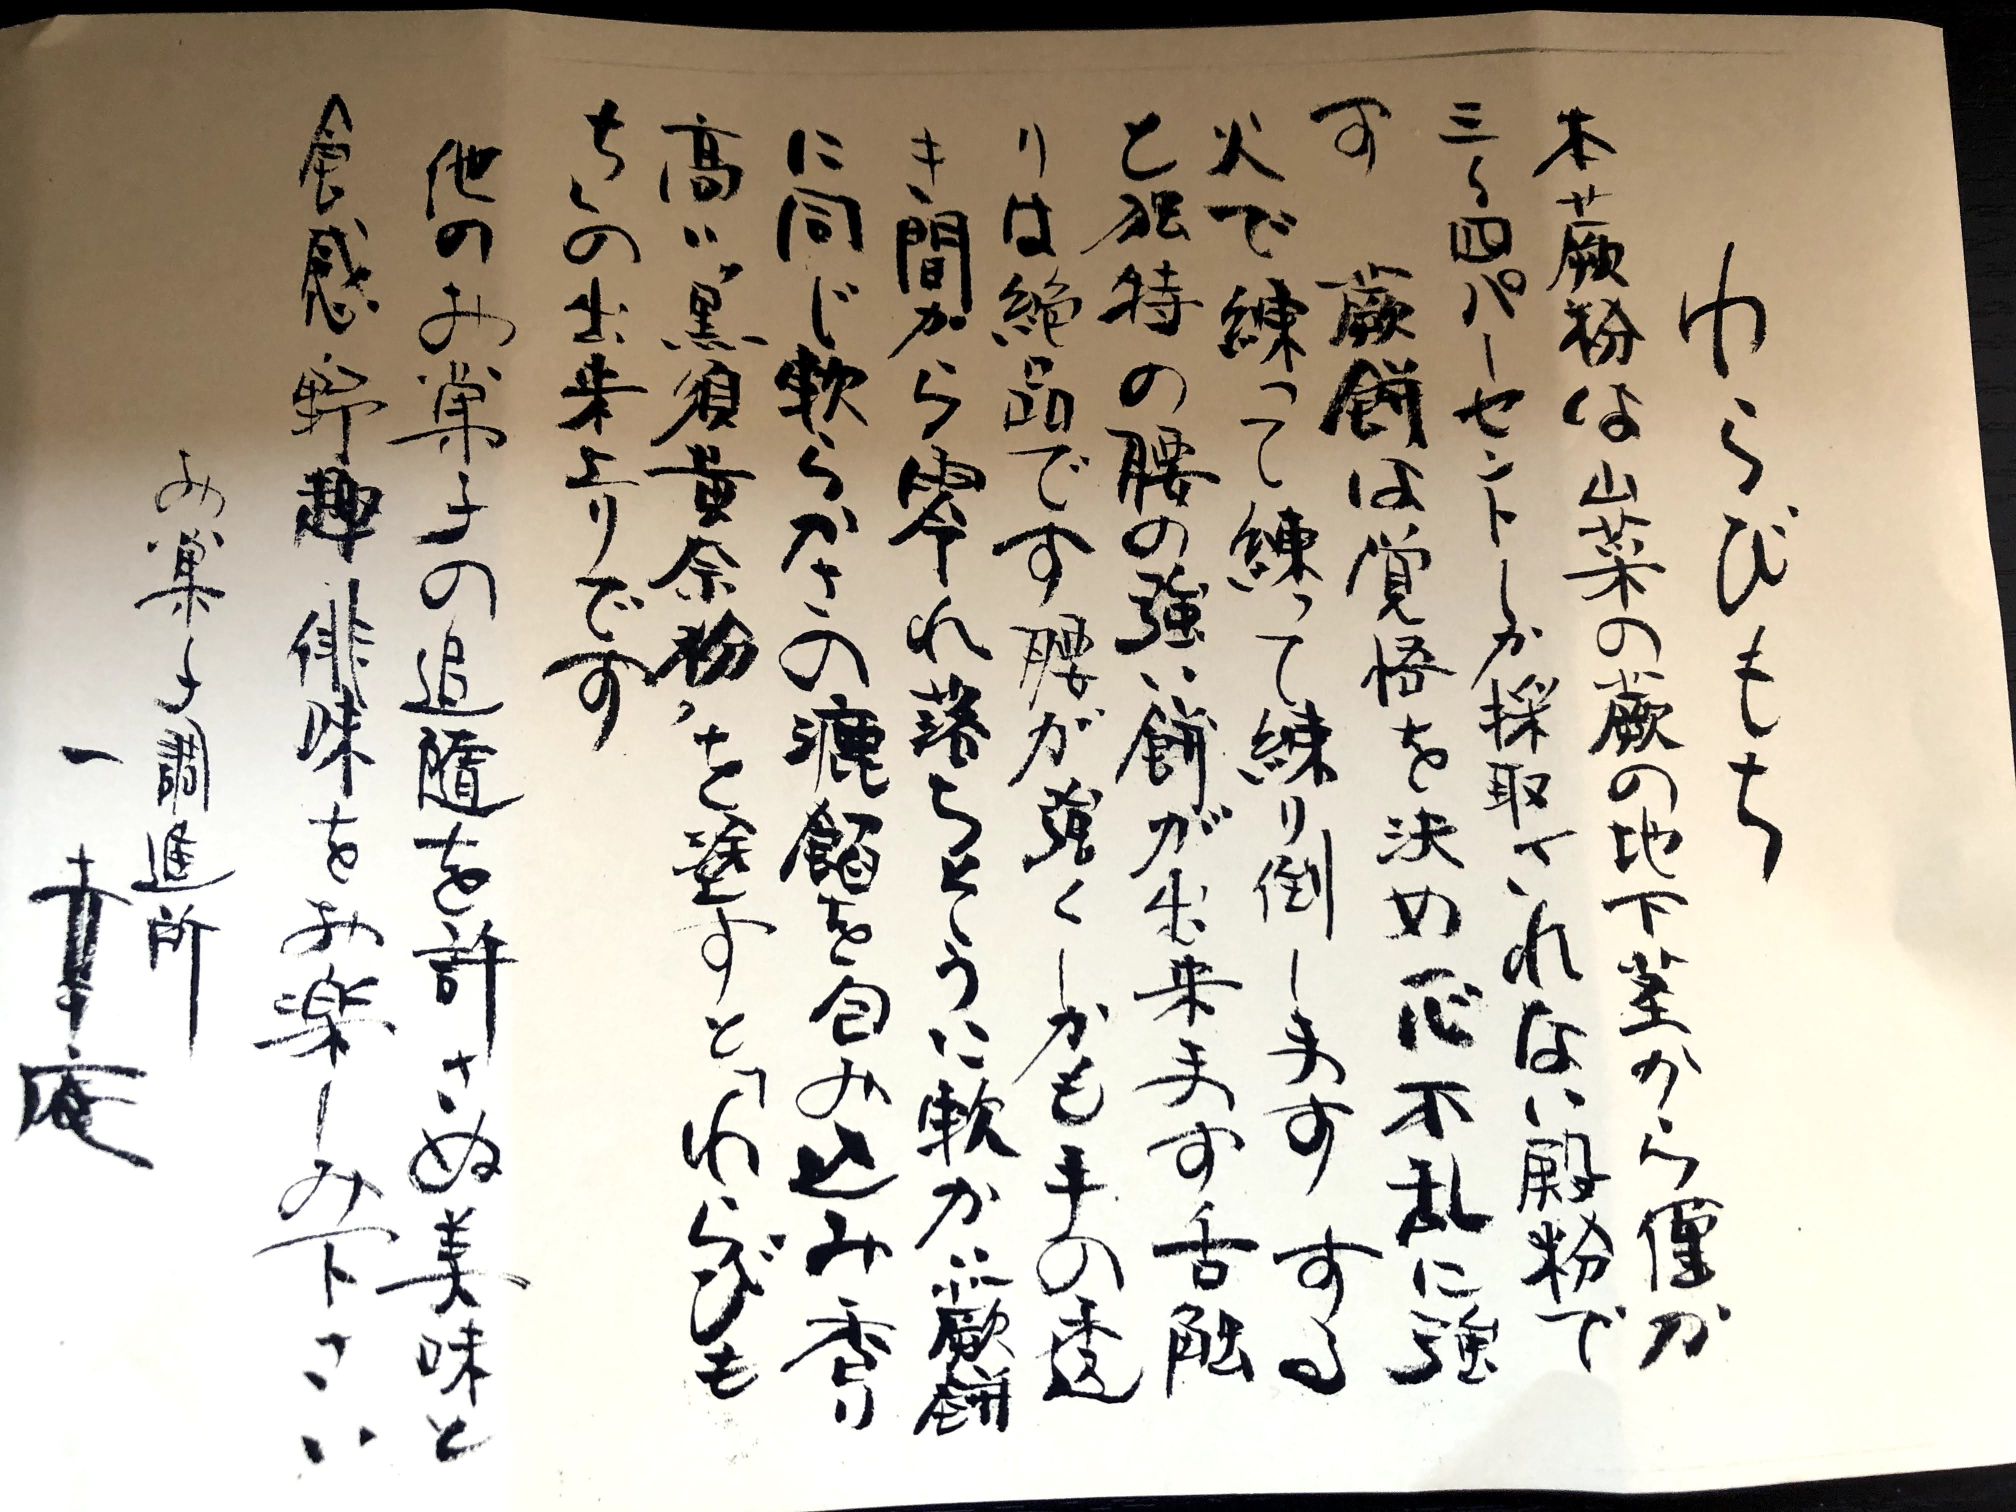 わらびもち
本蕨粉は山菜の蕨の地下茎から僅か
三〜四パーセントしか採取されない殿粉で
す　蕨餅は覚悟を決め一心不乱に強
火で練って練って練り倒します　する
と独特の腰の強い餅が出来ます舌触
りは絶品です腰が強くしかも手の透
き間から零れ落ちそうに軟かい蕨餅
に同じ軟らかさの漉餡を包み込み香り
高い〝黒須黄奈粉〟を塗すと「わらびも
ち」の出来上りです
他のお菓子の追随を許さぬ美味と
食感野趣俳味をお楽しみ下さい
お菓子調進所
一幸庵